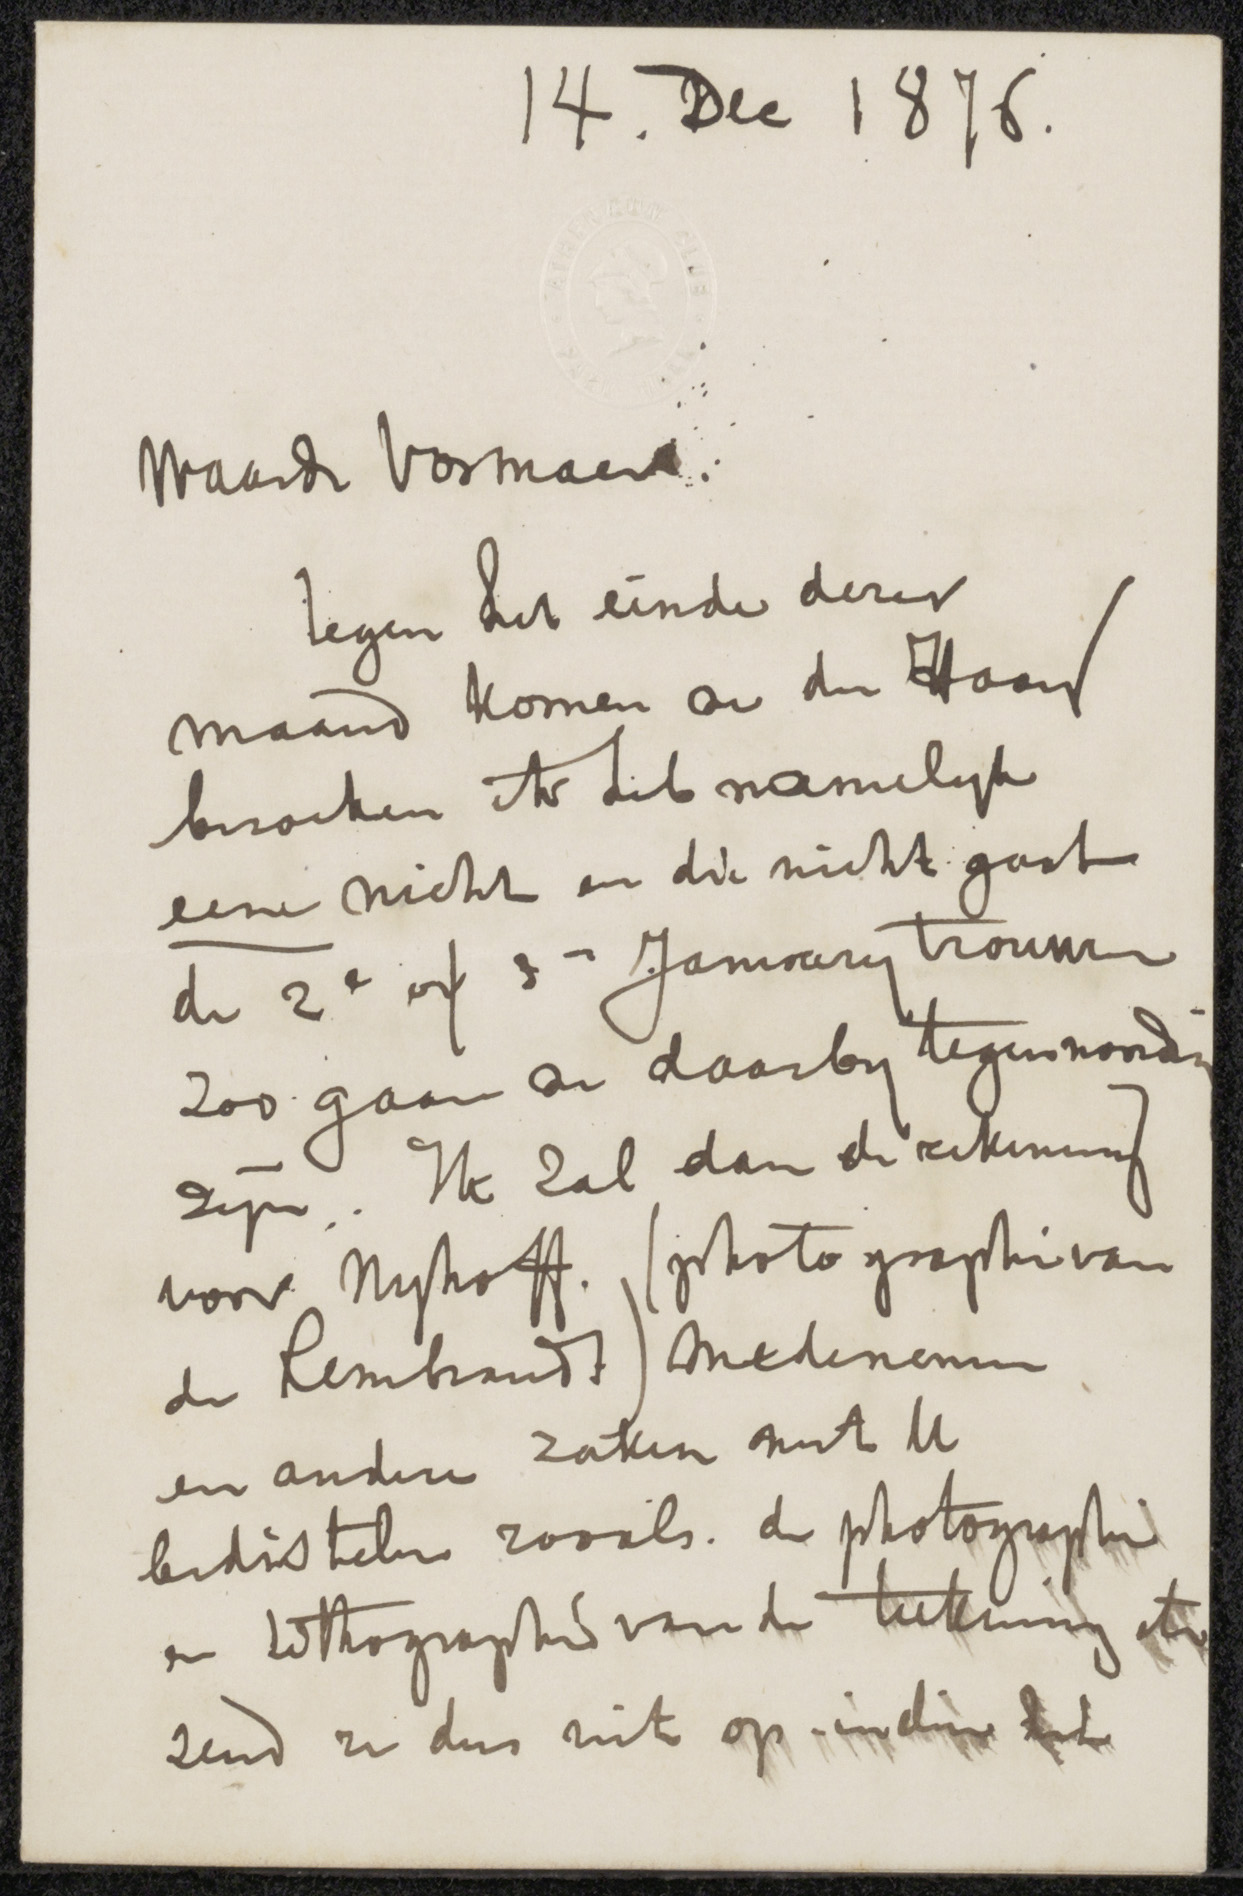 14. Dec 1876.
Waarde Vosmaer.
Tegen het einde dezer
maand komen we den Haag
bezoeken ik heb namelijk
eene nicht en die nicht gaat
de 2e of 3e January trouwen
zoo gaan we daarby tegenwoordig
zijn. Ik zal dan de rekening
voor Nyhoff. (photographie van
de Rembrandt) medenemen
en andere zaken met U
bedisselen zooals. de photographie
en lithographie van de teekening etc
zend ze dus niet op indien het